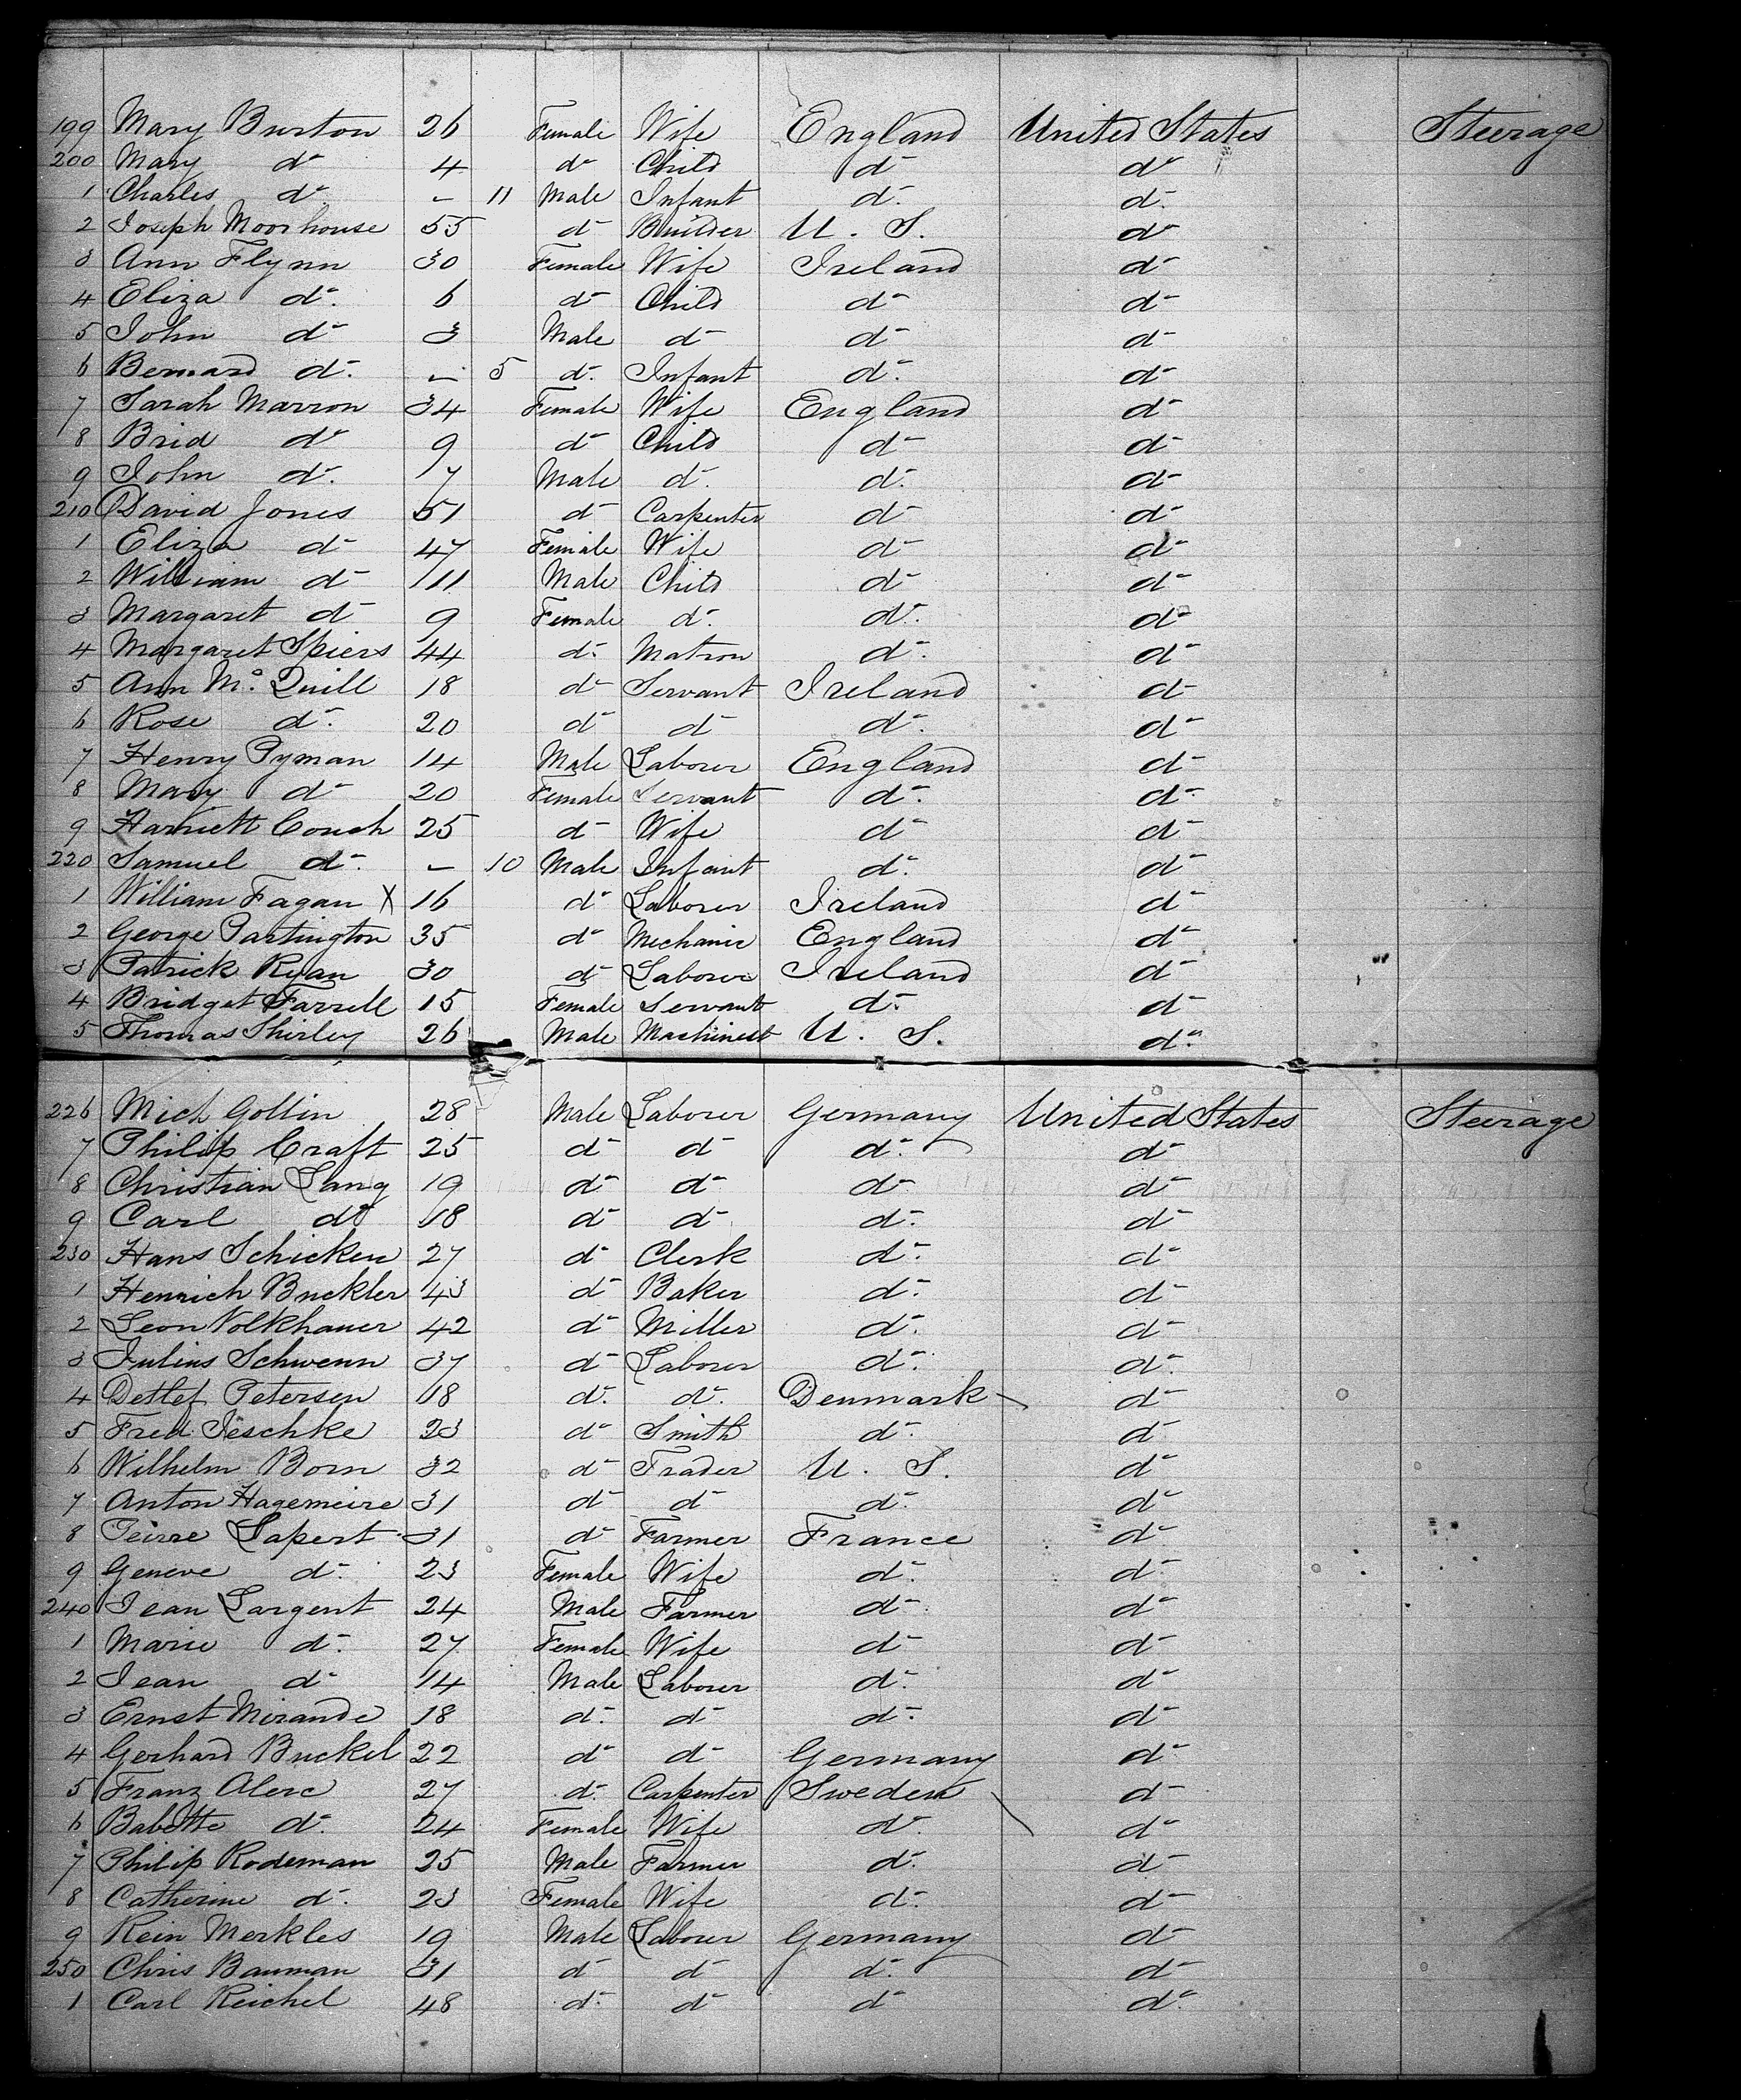 199 Mary Burton 26 Female Wife England United States Steerage
200 Mary do 4 do Child do do
1 Charles do - 11 Male Infant do do
2 Joseph Moorhouse 55 do Builder U. S. do
3 Ann Flynn 30 Female Wife Ireland do
4 Eliza do 6 do Child do do
5 John do 3 Male do do do
6 Bernard do - 5 do Infant do do
7 Sarah Marron 34 Female Wife England do
8 Brid do 9 do Child do do
9 John do 7 Male do do do
210 David Jones 51 do Carpenter do do
1 Eliza do 47 Female Wife do do
2 William do 11 Male Child do do
3 Margaret do 9 Female do do do
4 Margaret Spiers 44 do Matron do do
5 Ann Mc Quill 18 do Servant Ireland do
6 Rose do 20 do do do do
7 Henry Pyman 14 Male Laborer England do
8 Mary do 20 Female Servant do do
9 Harriett Couch 25 do Wife do do
220 Samuel do - 10 Male Infant do do
1 William Fagan X 16 do Laborer Ireland do
2 George Partington 35 do Mechanic England do
3 Patrick Ryan 30 do Laborer Ireland do
4 Bridget Farrell 15 Female Servant do do
5 Thomas Shirley 26 Male Machinest U. S. do
226 Mich Gollin 28 Male Laborer Germany United States Steerage
7 Philip Craft 25 do do do do
8 Christian Lang 19 do do do do
9 Carl do 18 do do do do
230 Hans Schicken 27 do Clerk do do
1 Henrich Buckler 43 do Baker do do
2 Leon Volkhauer 42 do Miller do do
3 Julius Schwenn 37 do Laborer do do
4 Detlef Petersen 18 do do Denmark do
5 Fred Jeschke 23 do Smith do do
6 Wilhelm Born 32 do Trader U. S. do
7 Anton Hagemeire 31 do do do do
8 Peirre Lapert 31 do Farmer France do
9 Geneve do 23 Female Wife do do
240 Jean Largent 24 Male Farmer do do
1 Marie do 27 Female Wife do do
2 Jean do 14 Male Laborer do do
3 Ernst Mirande 18 do do do do
4 Gerhard Buckel 22 do do Germany do
5 Franz Alerc 27 do Carpenter Sweden do
6 Babette do 24 Female Wife do do
7 Philip Rodeman 25 Male Farmer do do
8 Catherine do 23 Female Wife do do
9 Rein Merkles 19 Male Laborer Germany do
250 Chris Bauman 31 do do do do
1 Carl Reichel 48 do do do do